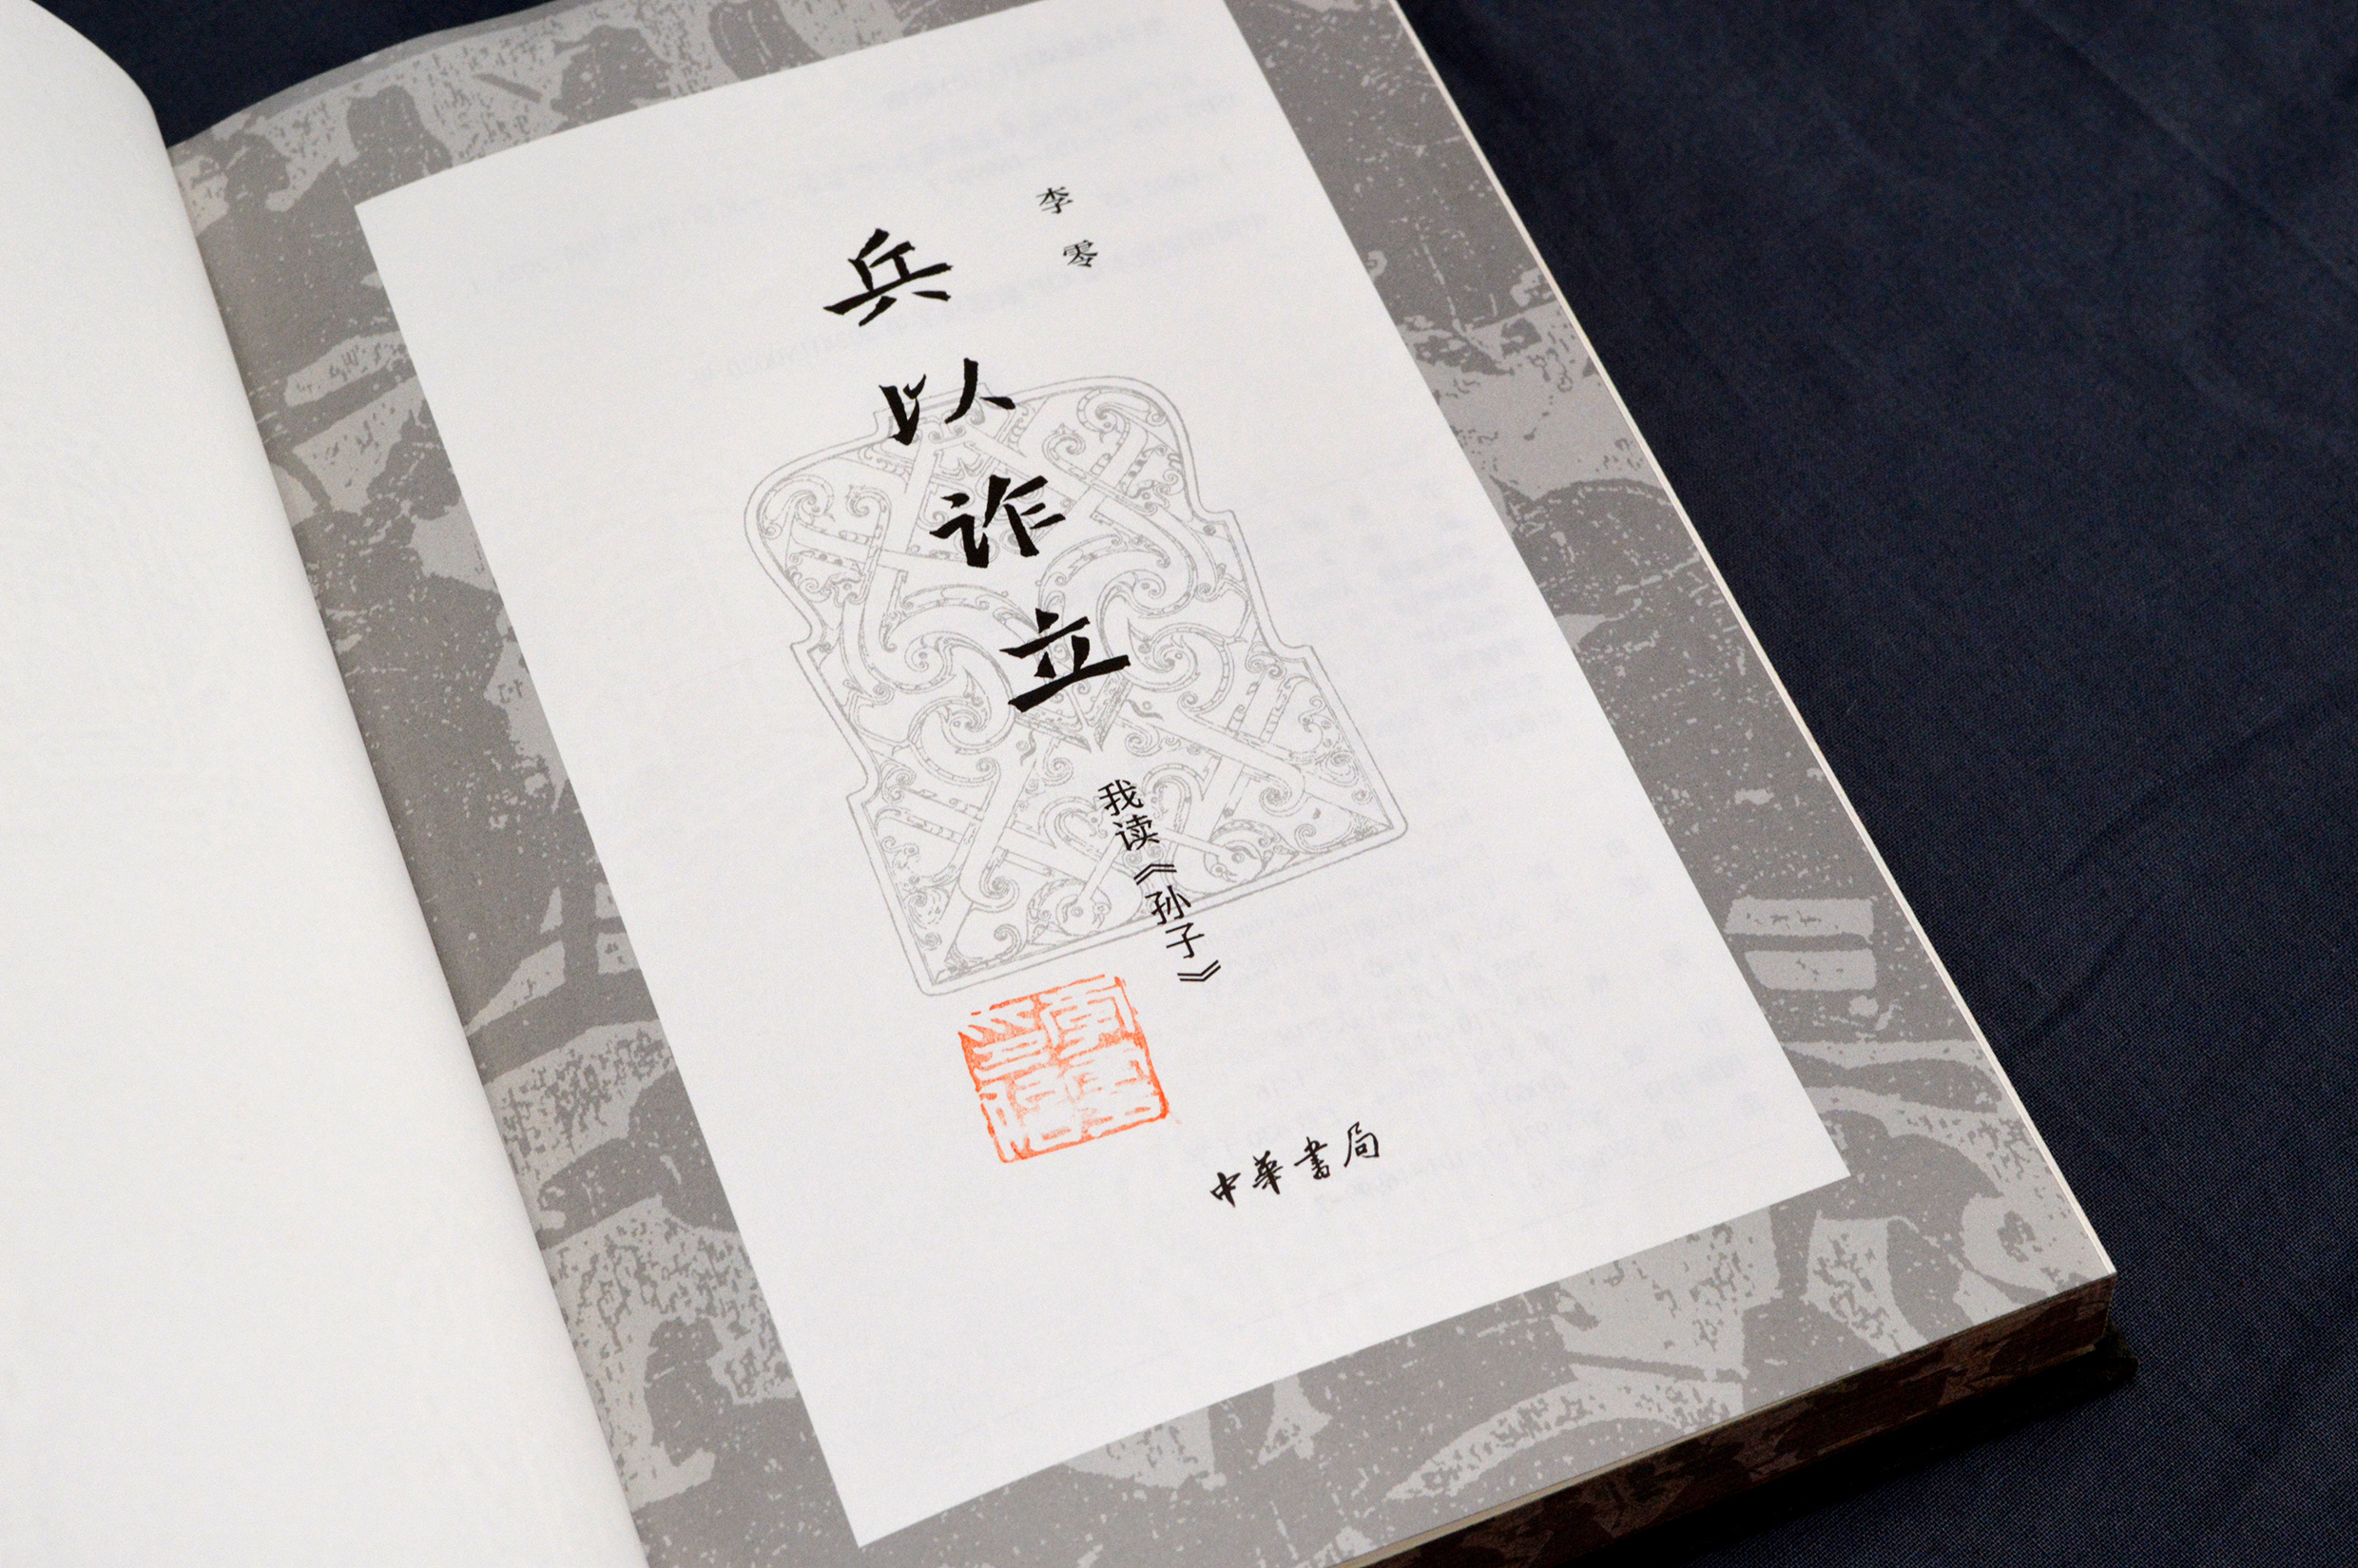 李零
兵以诈立
我读《孙子》
中華書局